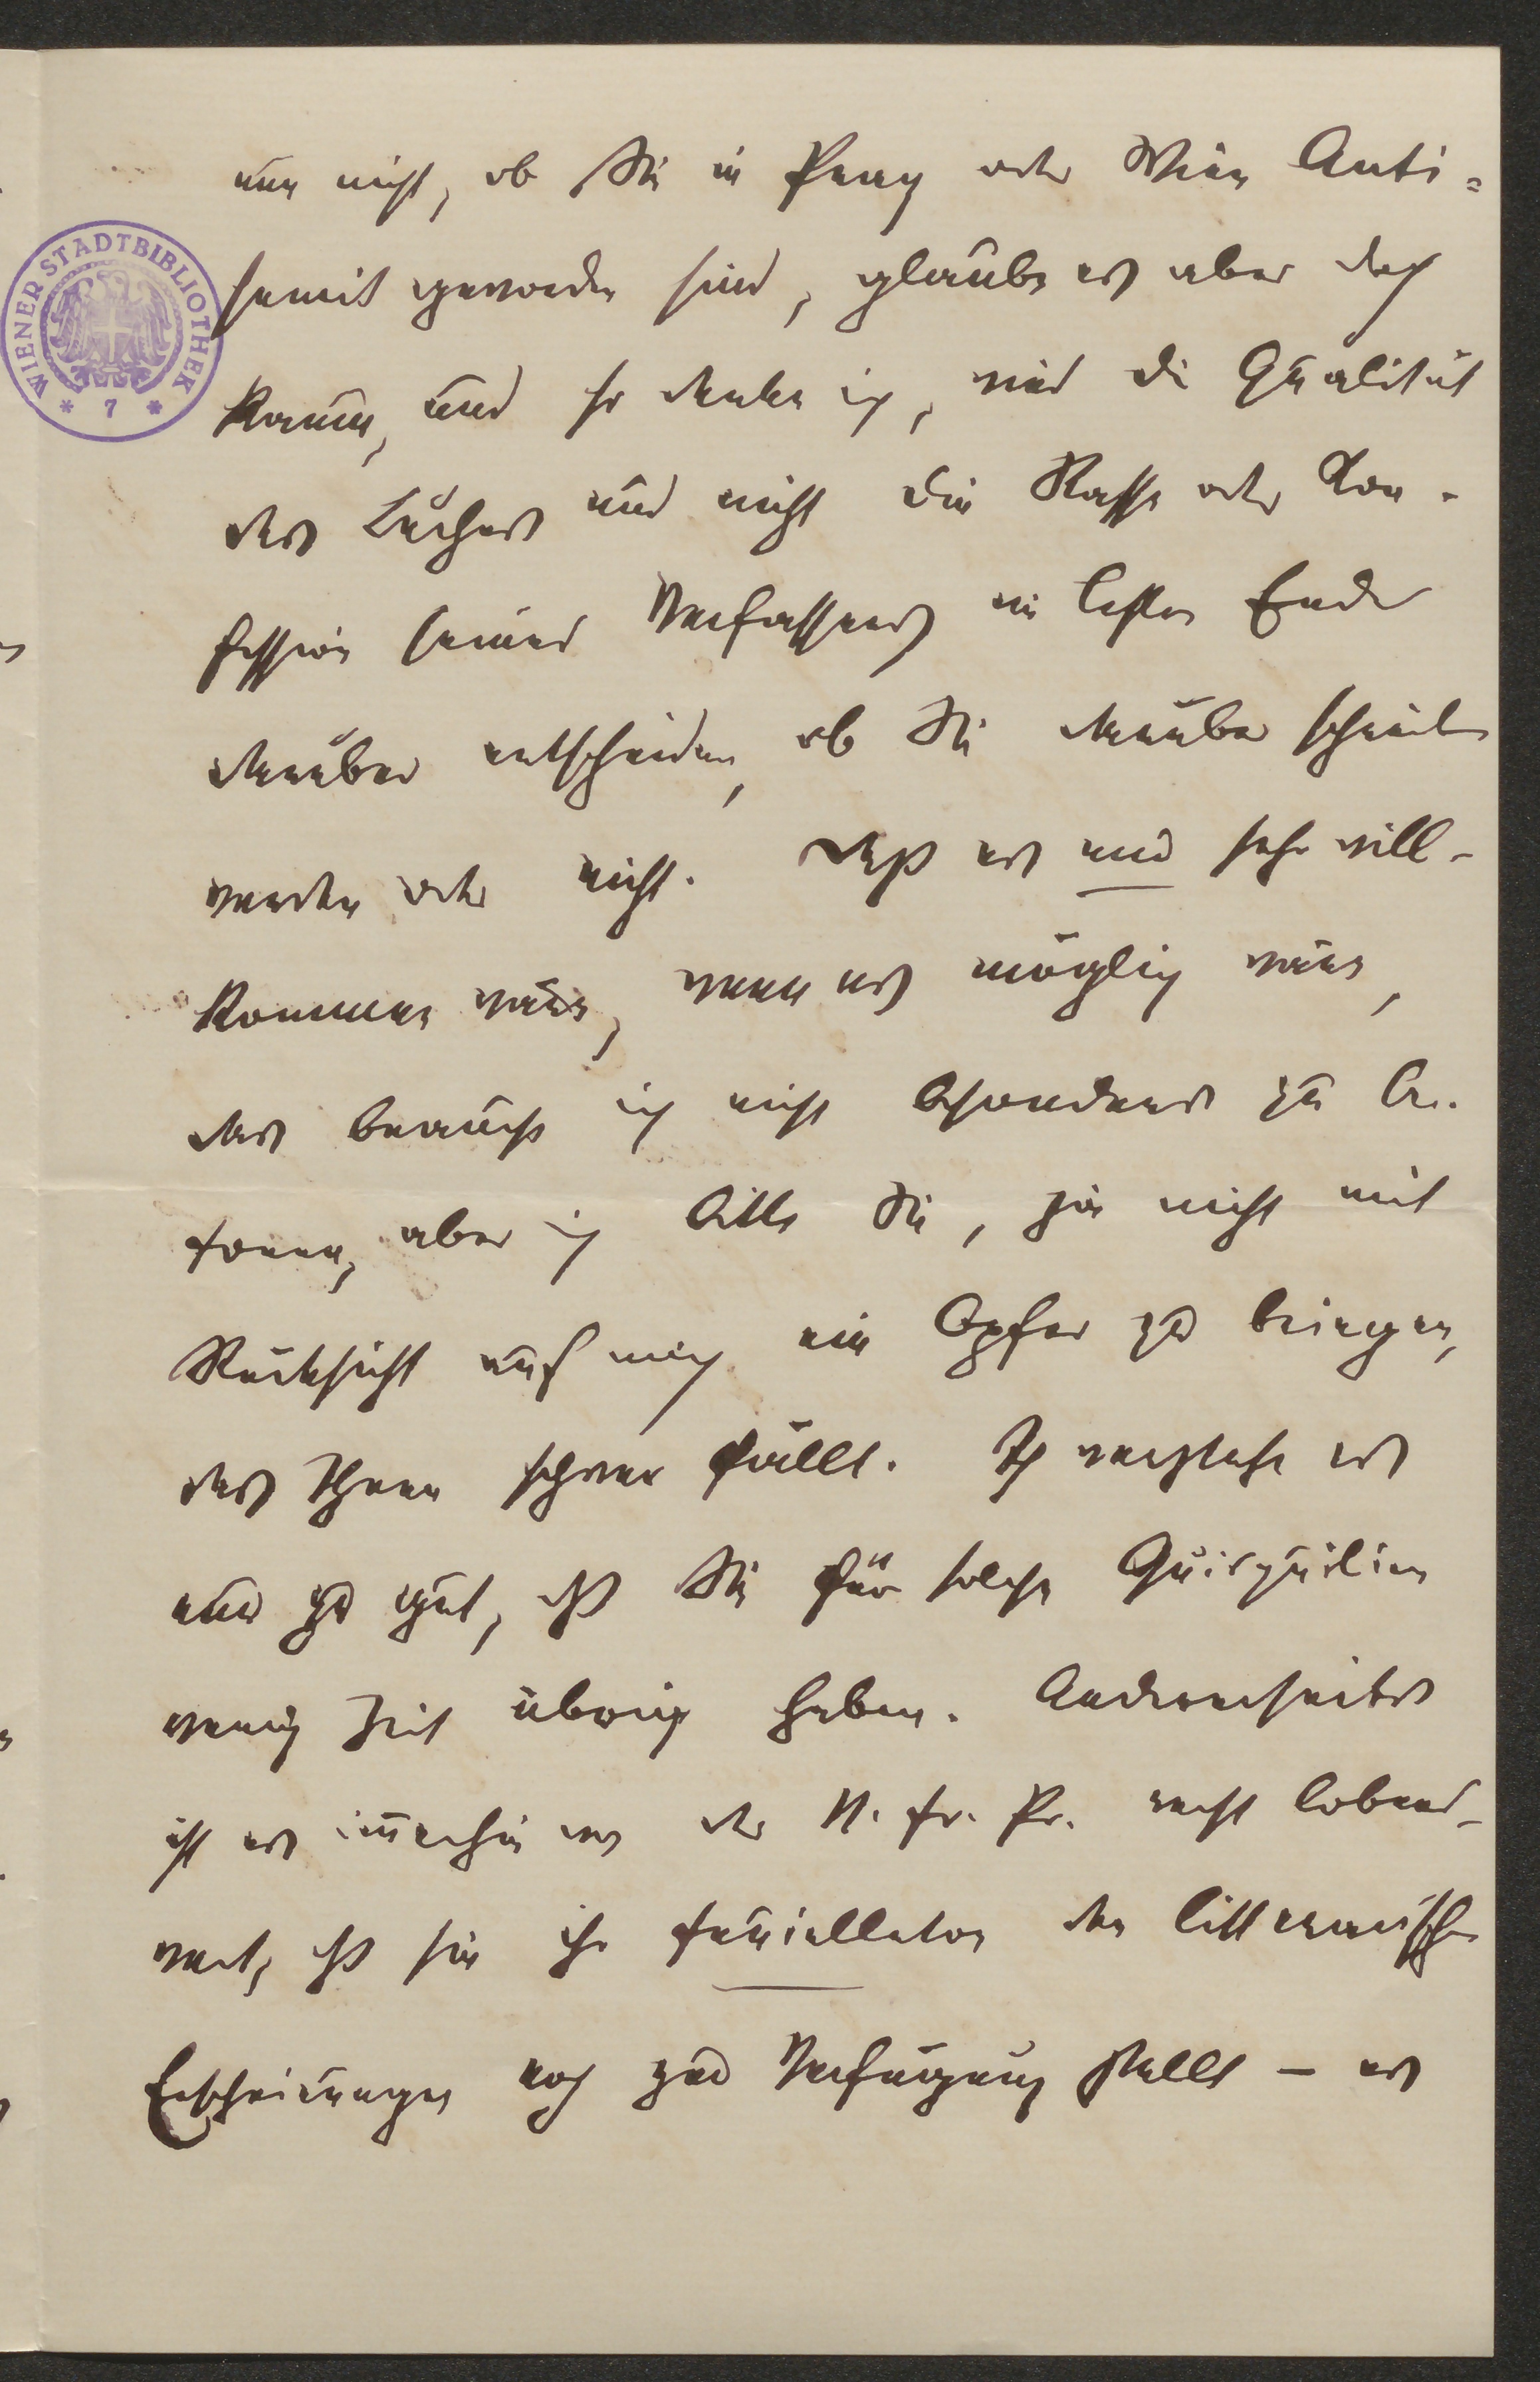 nun nicht, ob Sie in Prag oder Wien Anti-
semit geworden sind, glaube es aber doch
kaum, und so denke ich, wird die Qualität
des Buches und nicht die Rasse oder Kon-
fession seines Verfassers am letzten Ende
darüber entscheiden, ob Sie darüber schreiben
werden oder nicht. Daß es mir sehr will-
kommen wäre, wenn es möglich wäre,
das brauche ich nicht besonders zu be-
tonen, aber ich bitte Sie, ja nicht mit
Rücksicht auf mich ein Opfer zu bringen,
das Ihnen schwer fällt. Ich verstehe es
nur zu gut, daß Sie für solche Quisquilien
wenig Zeit übrig haben. Andererseits
ist es immerhin von der N. fr. Pr. recht lobens-
wert, daß sie ihr Feuilleton den litterarischen
Erscheinungen noch zur Verfügung stellt – es
WIENER STADTBIBLIOTHEK
* 7 *